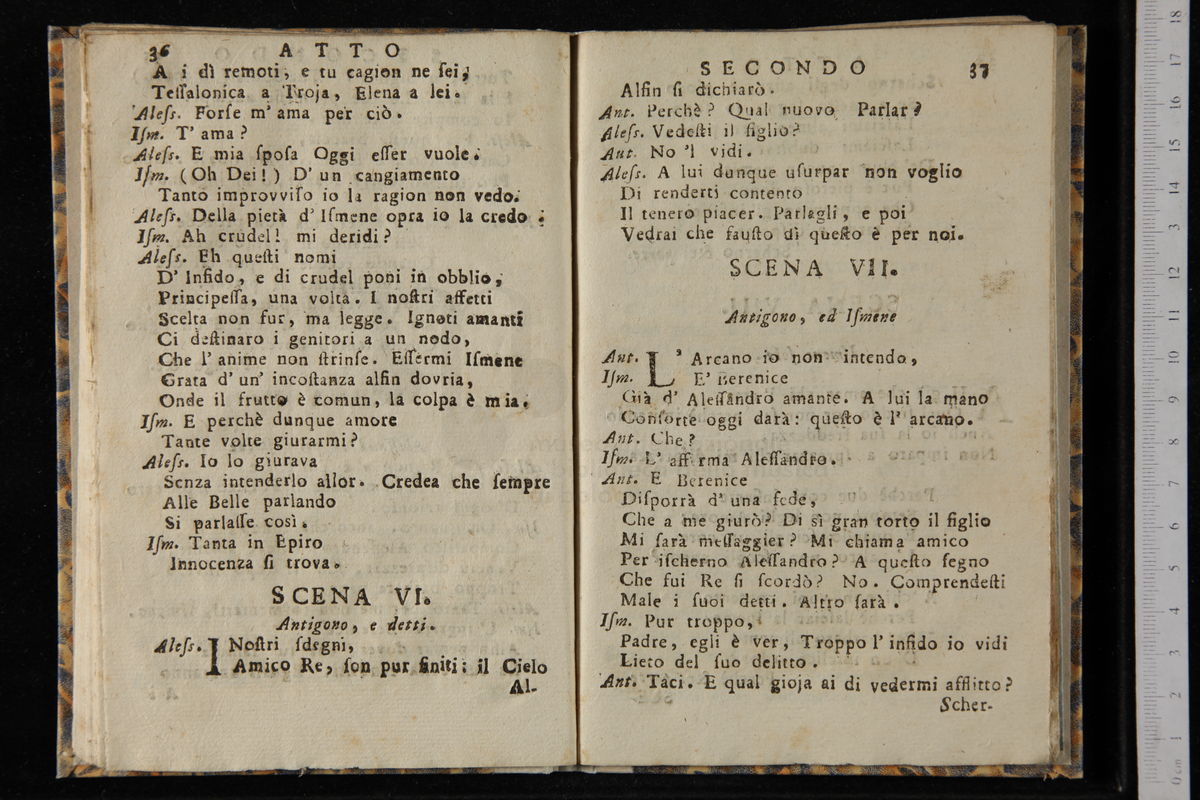 36 ATTO
A i dì remoti, e tu cagion ne ſei;
Teſſalonica a Troja, Elena a lei.
Aleſs. Forſe m' ama per ciò.
Iſm. T' ama?
Aleſs. E mia ſpoſa Oggi eſſer vuole.
Iſm. (Oh Dei!) D' un cangiamento
Tanto improvviſo io la ragion non vedo.
Aleſs. Della pietà d' Iſmene opra io la credo.
Iſm. Ah crudel! mi deridi?
Aleſs. Eh queſti nomi
D' Infido, e di crudel poni in obblio,
Principeſſa, una volta. I noſtri affetti
Scelta non fur, ma legge. Ignoti amanti
Ci deſtinaro i genitori a un nodo,
Che l' anime non ſtrinſe. Eſſermi Iſmene
Grata d' un' incoſtanza alfin dovria,
Onde il frutto è comun, la colpa è mia.
Iſm. E perchè dunque amore
Tante volte giurarmi?
Aleſs. Io lo giurava
Senza intenderlo allor. Credea che ſempre
Alle Belle parlando
Si parlaſſe così.
Iſm. Tanta in Epiro
Innocenza ſi trova.
SCENA VI.
Antigono, e detti.
Aleſs. I Noſtri ſdegni,
Amico Re, ſon pur finiti: il Cielo
Al-
SECONDO 37
Alfin ſi dichiarò.
Ant. Perchè? Qual nuovo Parlar?
Aleſs. Vedeſti il figlio?
Aut. No 'l vidi.
Aleſs. A lui dunque uſurpar non voglio
Di renderti contento
Il tenero piacer. Parlagli, e poi
Vedrai che fauſto dì queſto è per noi.
SCENA VII.
Antigono, ed Iſmene
Ant. L' Arcano io non intendo,
Iſm. E' Berenice
Già d' Aleſſandro amante. A lui la mano
Conſorte oggi darà: queſto è l' arcano.
Ant. Che?
Iſm. L' aff rma Aleſſandro.
Ant. E Berenice
Diſporrà d' una fede,
Che a me giurò? Di sì gran torto il figlio
Mi ſarà meſſaggier? Mi chiama amico
Per iſcherno Aleſſandro? A queſto ſegno
Che fui Re ſi ſcordò? No. Comprendeſti
Male i ſuoi detti. Altro ſarà.
Iſm. Pur troppo,
Padre, egli è ver, Troppo l' infido io vidi
Lieto del ſuo delitto.
Ant. Taci. E qual gioja ai di vedermi afflitto?
Scher-
0 cm 1 2 3 4 5 6 7 8 9 10 11 12 13 14 15 16 17 18